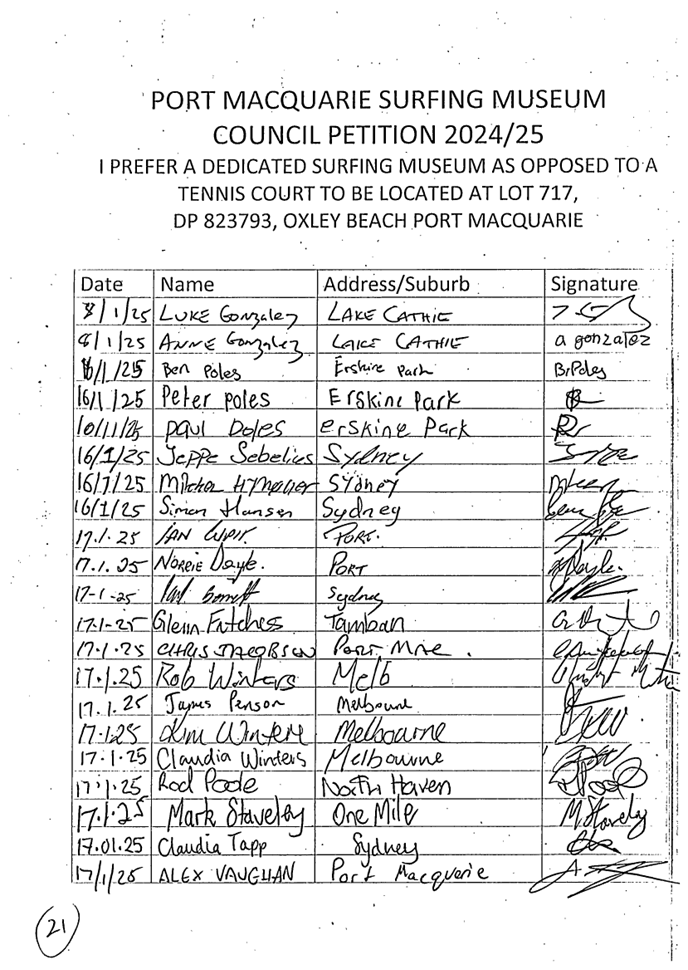 PORT MACQUARIE SURFING MUSEUM
COUNCIL PETITION 2024/25
I PREFER A DEDICATED SURFING MUSEUM AS OPPOSED TO A
TENNIS COURT TO BE LOCATED AT LOT 717,
DP 823793, OXLEY BEACH PORT MACQUARIE
Date Name Address/Suburb Signature
8/1/25 LUKE Gonzalez LAKE CATHIE
8/1/25 ANNE Gonzalez LAKE CATHIE a gonzalez
16/1/25 Ben Poles Erskine Park B.Poles
16/1/25 Peter poles Erskine Park
Paul Poles erskine Park
16/1/25 Jeppe Sebelius Sydney
16/1/25 Sydney
16/1/25 Simon Hansen Sydney
17.1.25 IAN PORT.
17.1.25 NORRIE Doyle. PORT Doyle.
17-1-25 Sydney
17-1-25 Glenn Futchess Tamban
17.1.25 CHRIS JACOBSON Port Mcne.
17.1.25 Rob Winters Melb
17.1.25 James Penson Melbourne
17.1.25 Kim Winters Melbourne
17.1.25 Claudia Winters Melbourne
17.1.25 Rod Poole North Haven
17.1.25 Mark Staveley One Mile M.Stavely
17.01.25 Claudia Tapp Sydney
17/1/25 ALEX VAUGHAN Port Macquerie
21